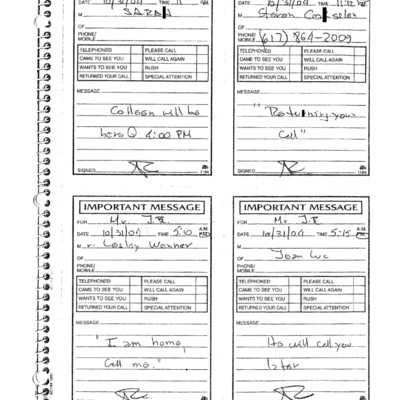 DATE 10/31/04 TIME 11 A.M.
M SARBA
OF
PHONE/
MOBILE
TELEPHONED PLEASE CALL
CAME TO SEE YOU WILL CALL AGAIN
WANTS TO SEE YOU RUSH
RETURNED YOUR CALL SPECIAL ATTENTION
MESSAGE
Colleen will be
here @ 4:00 PM
SIGNED
1184
DATE 10/31/04 TIME 11:12
M
OF
PHONE/
MOBILE (617) 864-2009
TELEPHONED PLEASE CALL
CAME TO SEE YOU WILL CALL AGAIN
WANTS TO SEE YOU RUSH
RETURNED YOUR CALL SPECIAL ATTENTION
MESSAGE
"Returning your
call"
SIGNED
1184
IMPORTANT MESSAGE
FOR Mr. J.E.
DATE 10/31/04 TIME 5:10 A.M. P.M.
M r. Lesley Wexner
OF
PHONE/
MOBILE
TELEPHONED PLEASE CALL
CAME TO SEE YOU WILL CALL AGAIN
WANTS TO SEE YOU RUSH
RETURNED YOUR CALL SPECIAL ATTENTION
MESSAGE
"I am home,
Call me."
IMPORTANT MESSAGE
FOR Mr J.E
DATE 10/31/04 TIME 5:15 A.M. P.M.
M
OF Jean Luc
PHONE/
MOBILE
TELEPHONED PLEASE CALL
CAME TO SEE YOU WILL CALL AGAIN
WANTS TO SEE YOU RUSH
RETURNED YOUR CALL SPECIAL ATTENTION
MESSAGE
He will call you
later